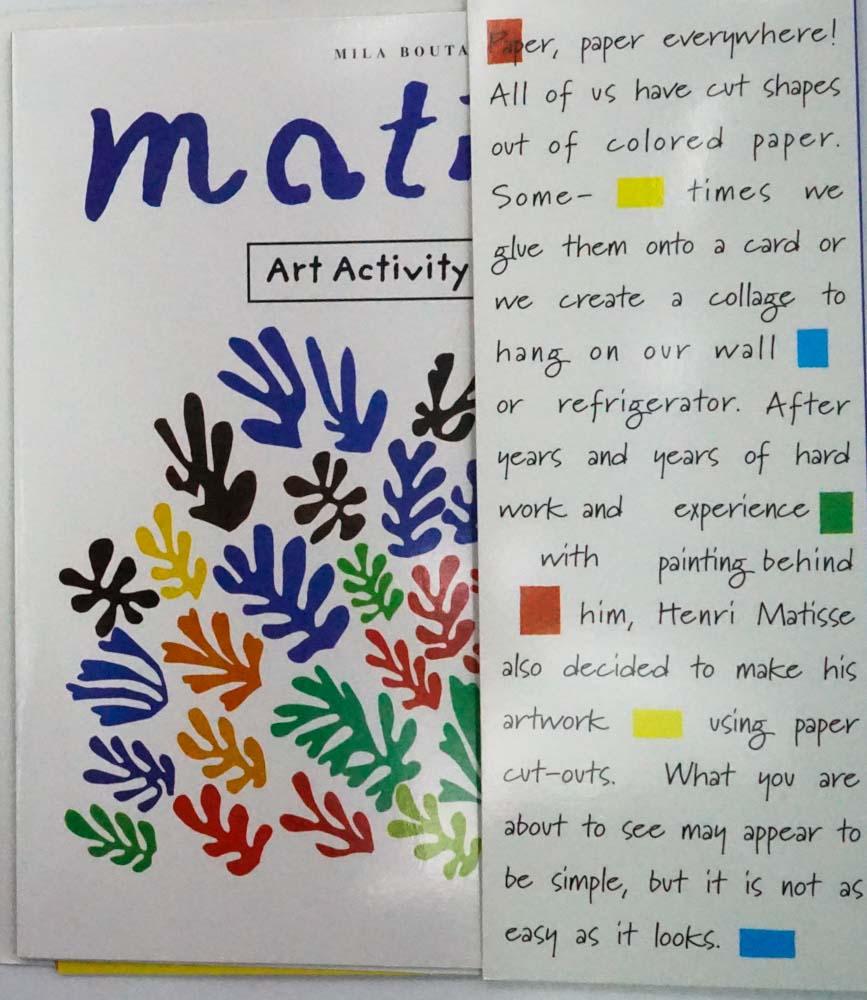 MILA BOUTA
mati
Art Activity
Paper, paper everywhere!
All of us have cut shapes
out of colored paper.
Some- times we
glue them onto a card or
we create a collage to
hang on our wall
or refrigerator. After
years and years of hard
work and experience
with painting behind
him, Henri Matisse
also decided to make his
artwork using paper
cut-outs. What you are
about to see may appear to
be simple, but it is not as
easy as it looks.